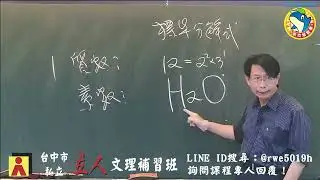 標準分解式
1 質數:
12=2²×3¹
素數:
H2O
台中市
私立
立人
文理補習班
LINE ID搜尋:@rwe5019h
詢問課程專人回覆!